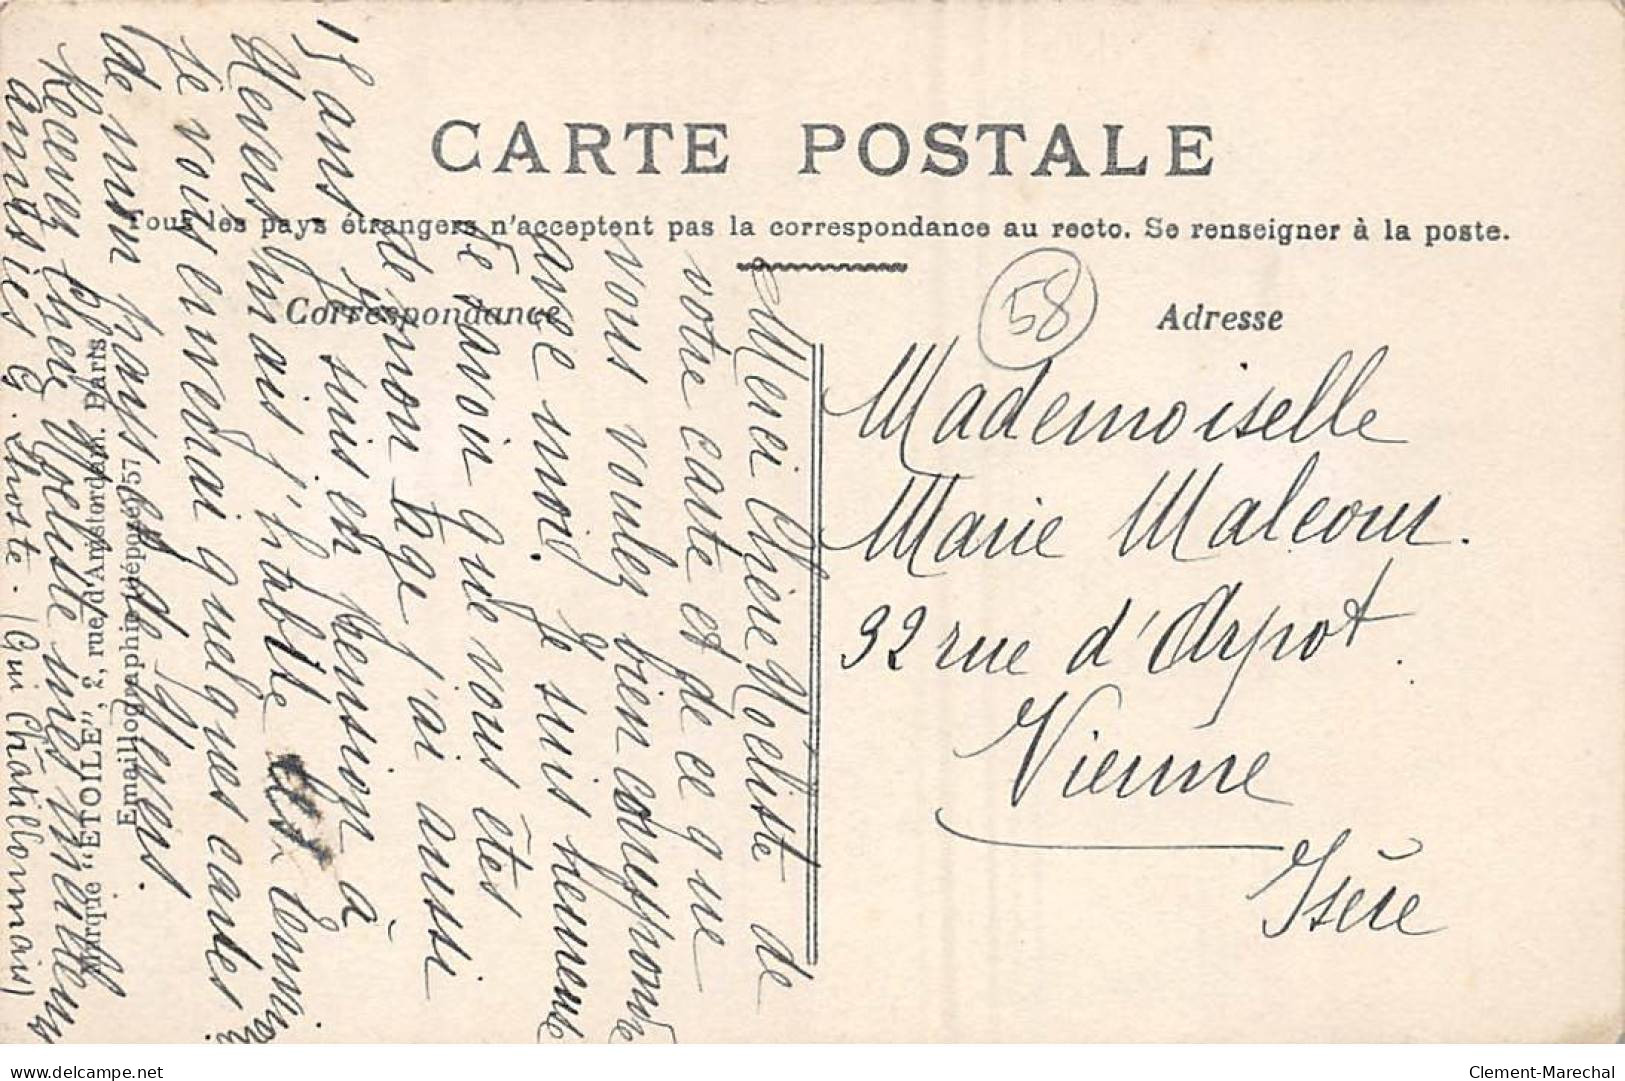 CARTE POSTALE
Tous les pays étrangers n'acceptent pas la correspondance au recto. Se renseigner à la poste.
Correspondance
Adresse
58
Mademoiselle
Marie Malcour.
32 rue d'Arpot
Vienne
Isère
Merci Chère Noëliste de
votre carte et de ce que
vous voulez bien correspondre
avec moi. Je suis heureuse
de savoir que vous êtes
de mon âge j'ai aussi
15 ans je suis en pension à
Nevers mais j'habite
je vous enverrai quelques cartes
de mon pays et de Nevers.
Recevez chère Noëliste mes meilleures
amitiés G. Lhoste - (Gui Châtillonnais)
Marque "ETOILE", 2, rue d'Amsterdam. Paris
Emaillographie déposé 957
Clement-Marechal